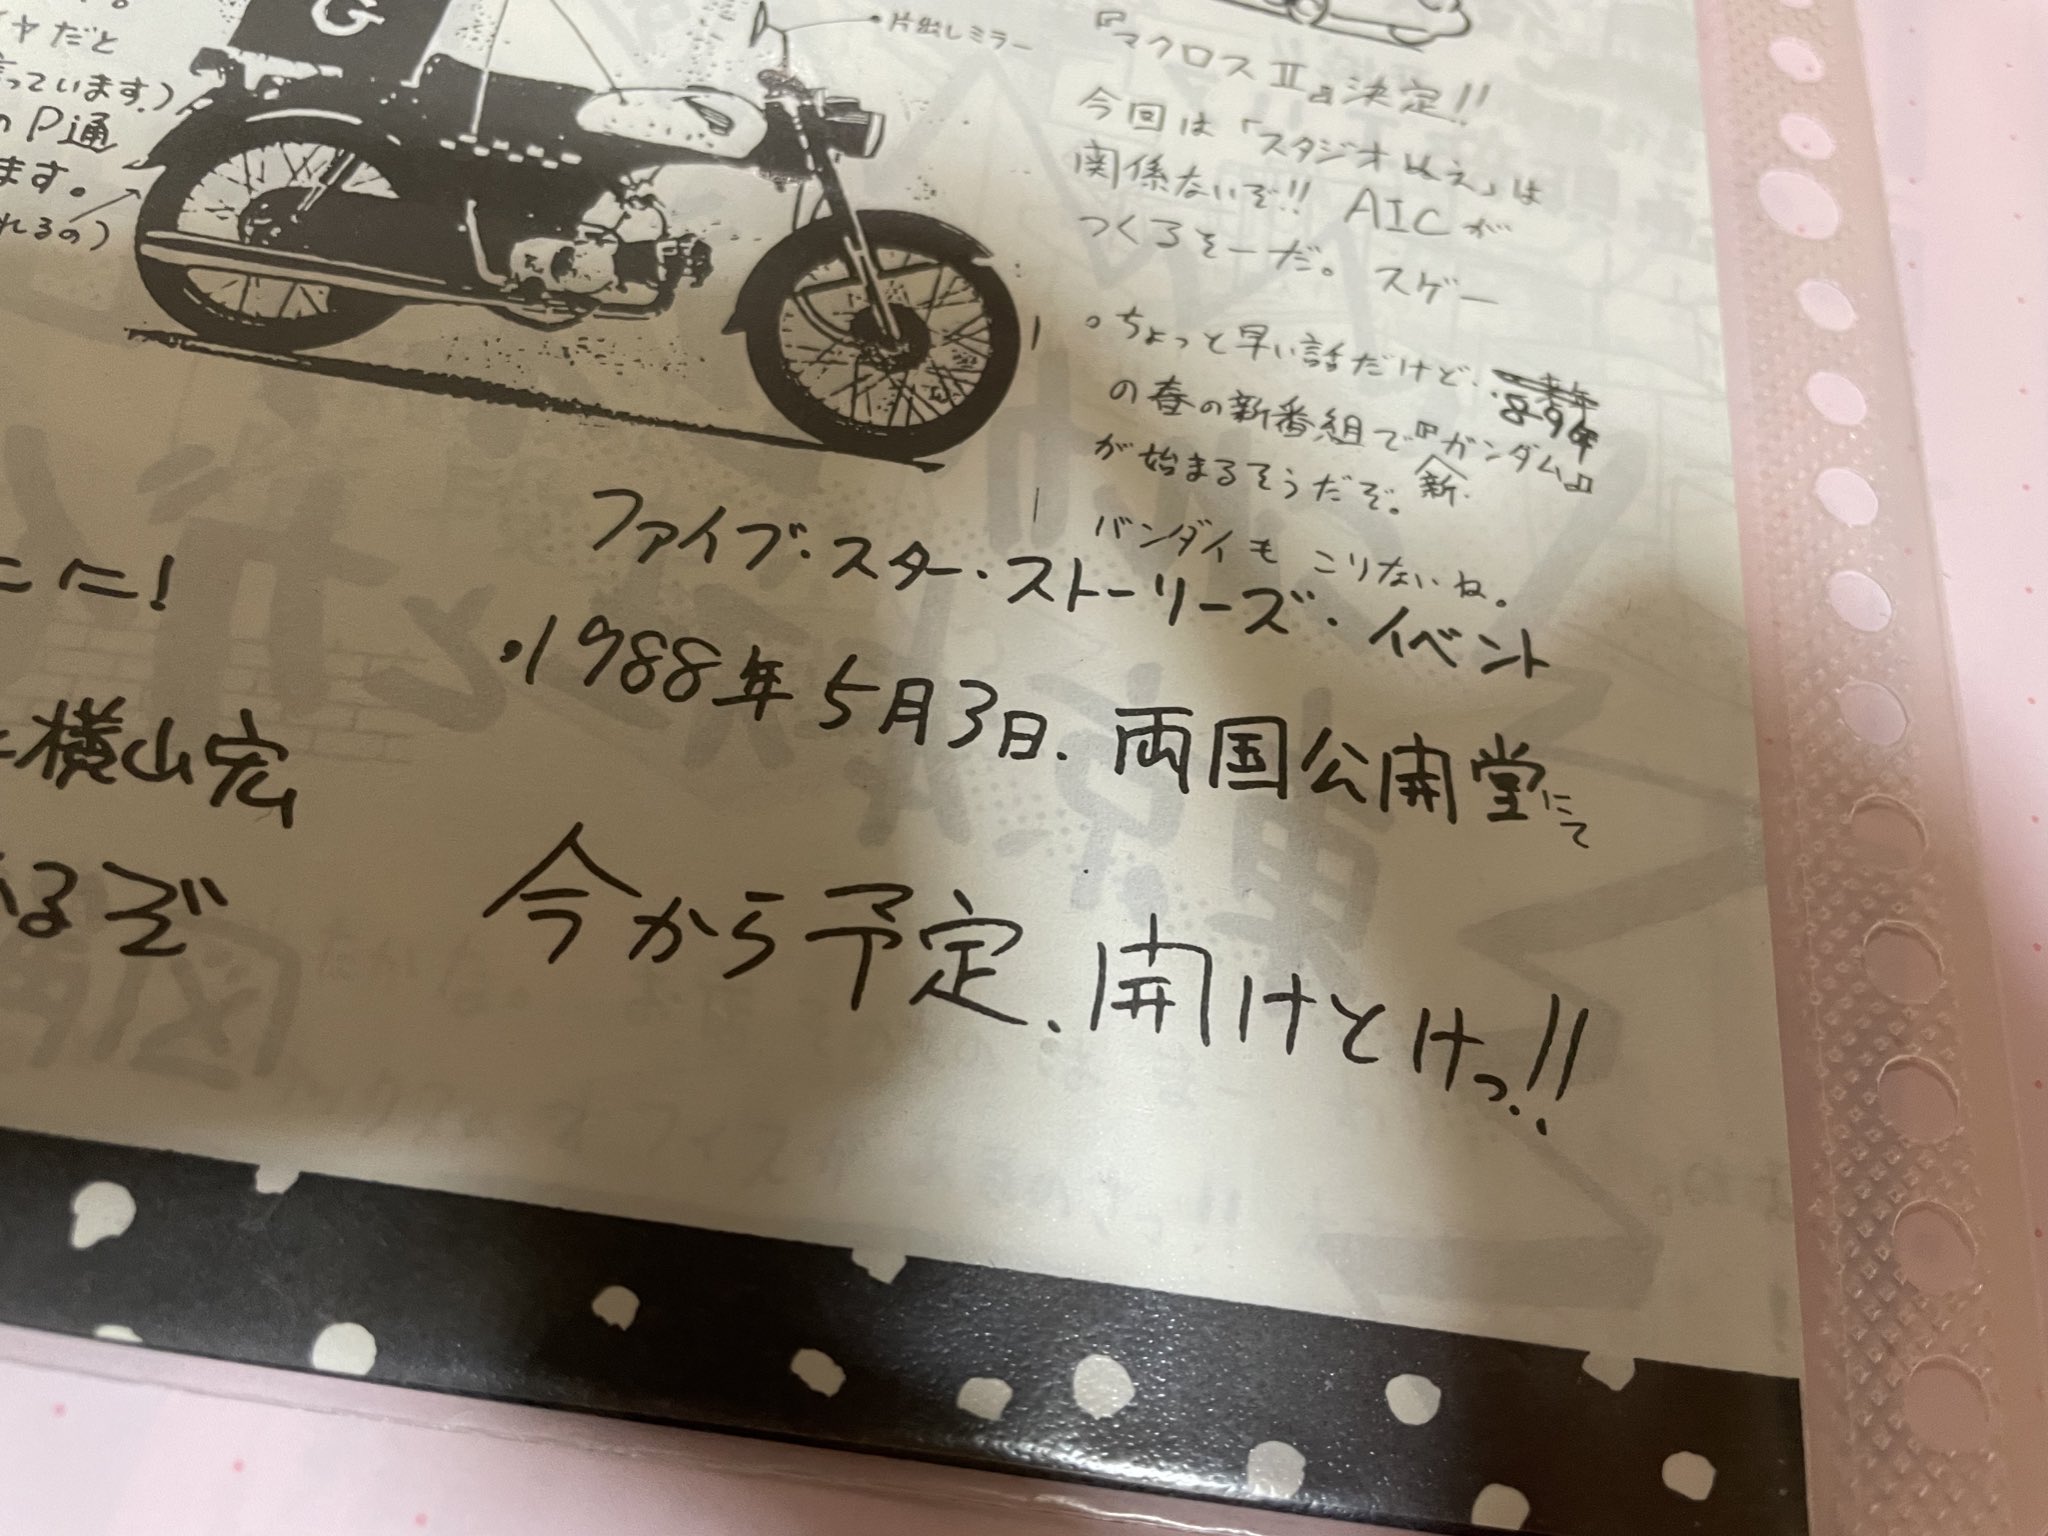 G
ヤだと
言っています。)
のPi通
ます。
れるの)
片出しミラー
『マクロスⅡ』決定!!
今回は「スタジオぬえ」は
関係ないぞ!! AICが
つくるそーだ。スゲー
・ちょっと早い話だけど・'89年
の春の新番組で『新ガンダム』
が始まるそうだぞ。
バンダイもこりないね。
ファイブ・スター・ストーリーズ・イベント
・1988年5月3日、両国公開堂にて
今から予定、開けとけっ!!
に!
横山宏
るぞ